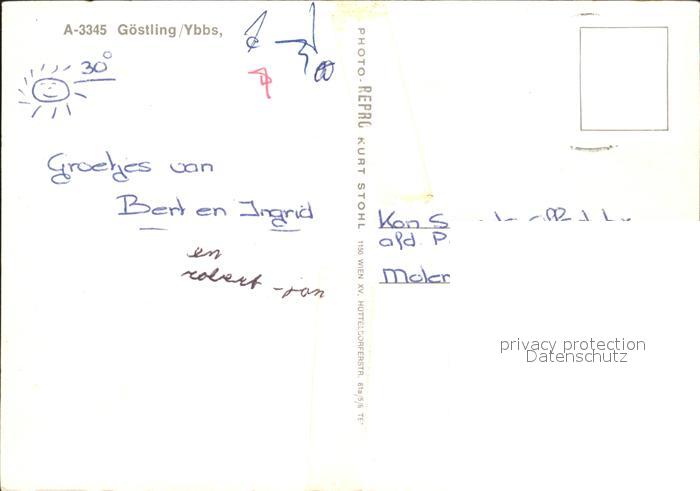 A-3345 Göstling/Ybbs,
30°
Groetjes van
Bert en Ingrid
en
robert-jan
PHOTO-REPRO KURT STOHL 1150 WIEN XV, HÜTTELDORFERSTR. 61a/5/6 TE
Kon S
afd. P.
Moler
privacy protection
Datenschutz